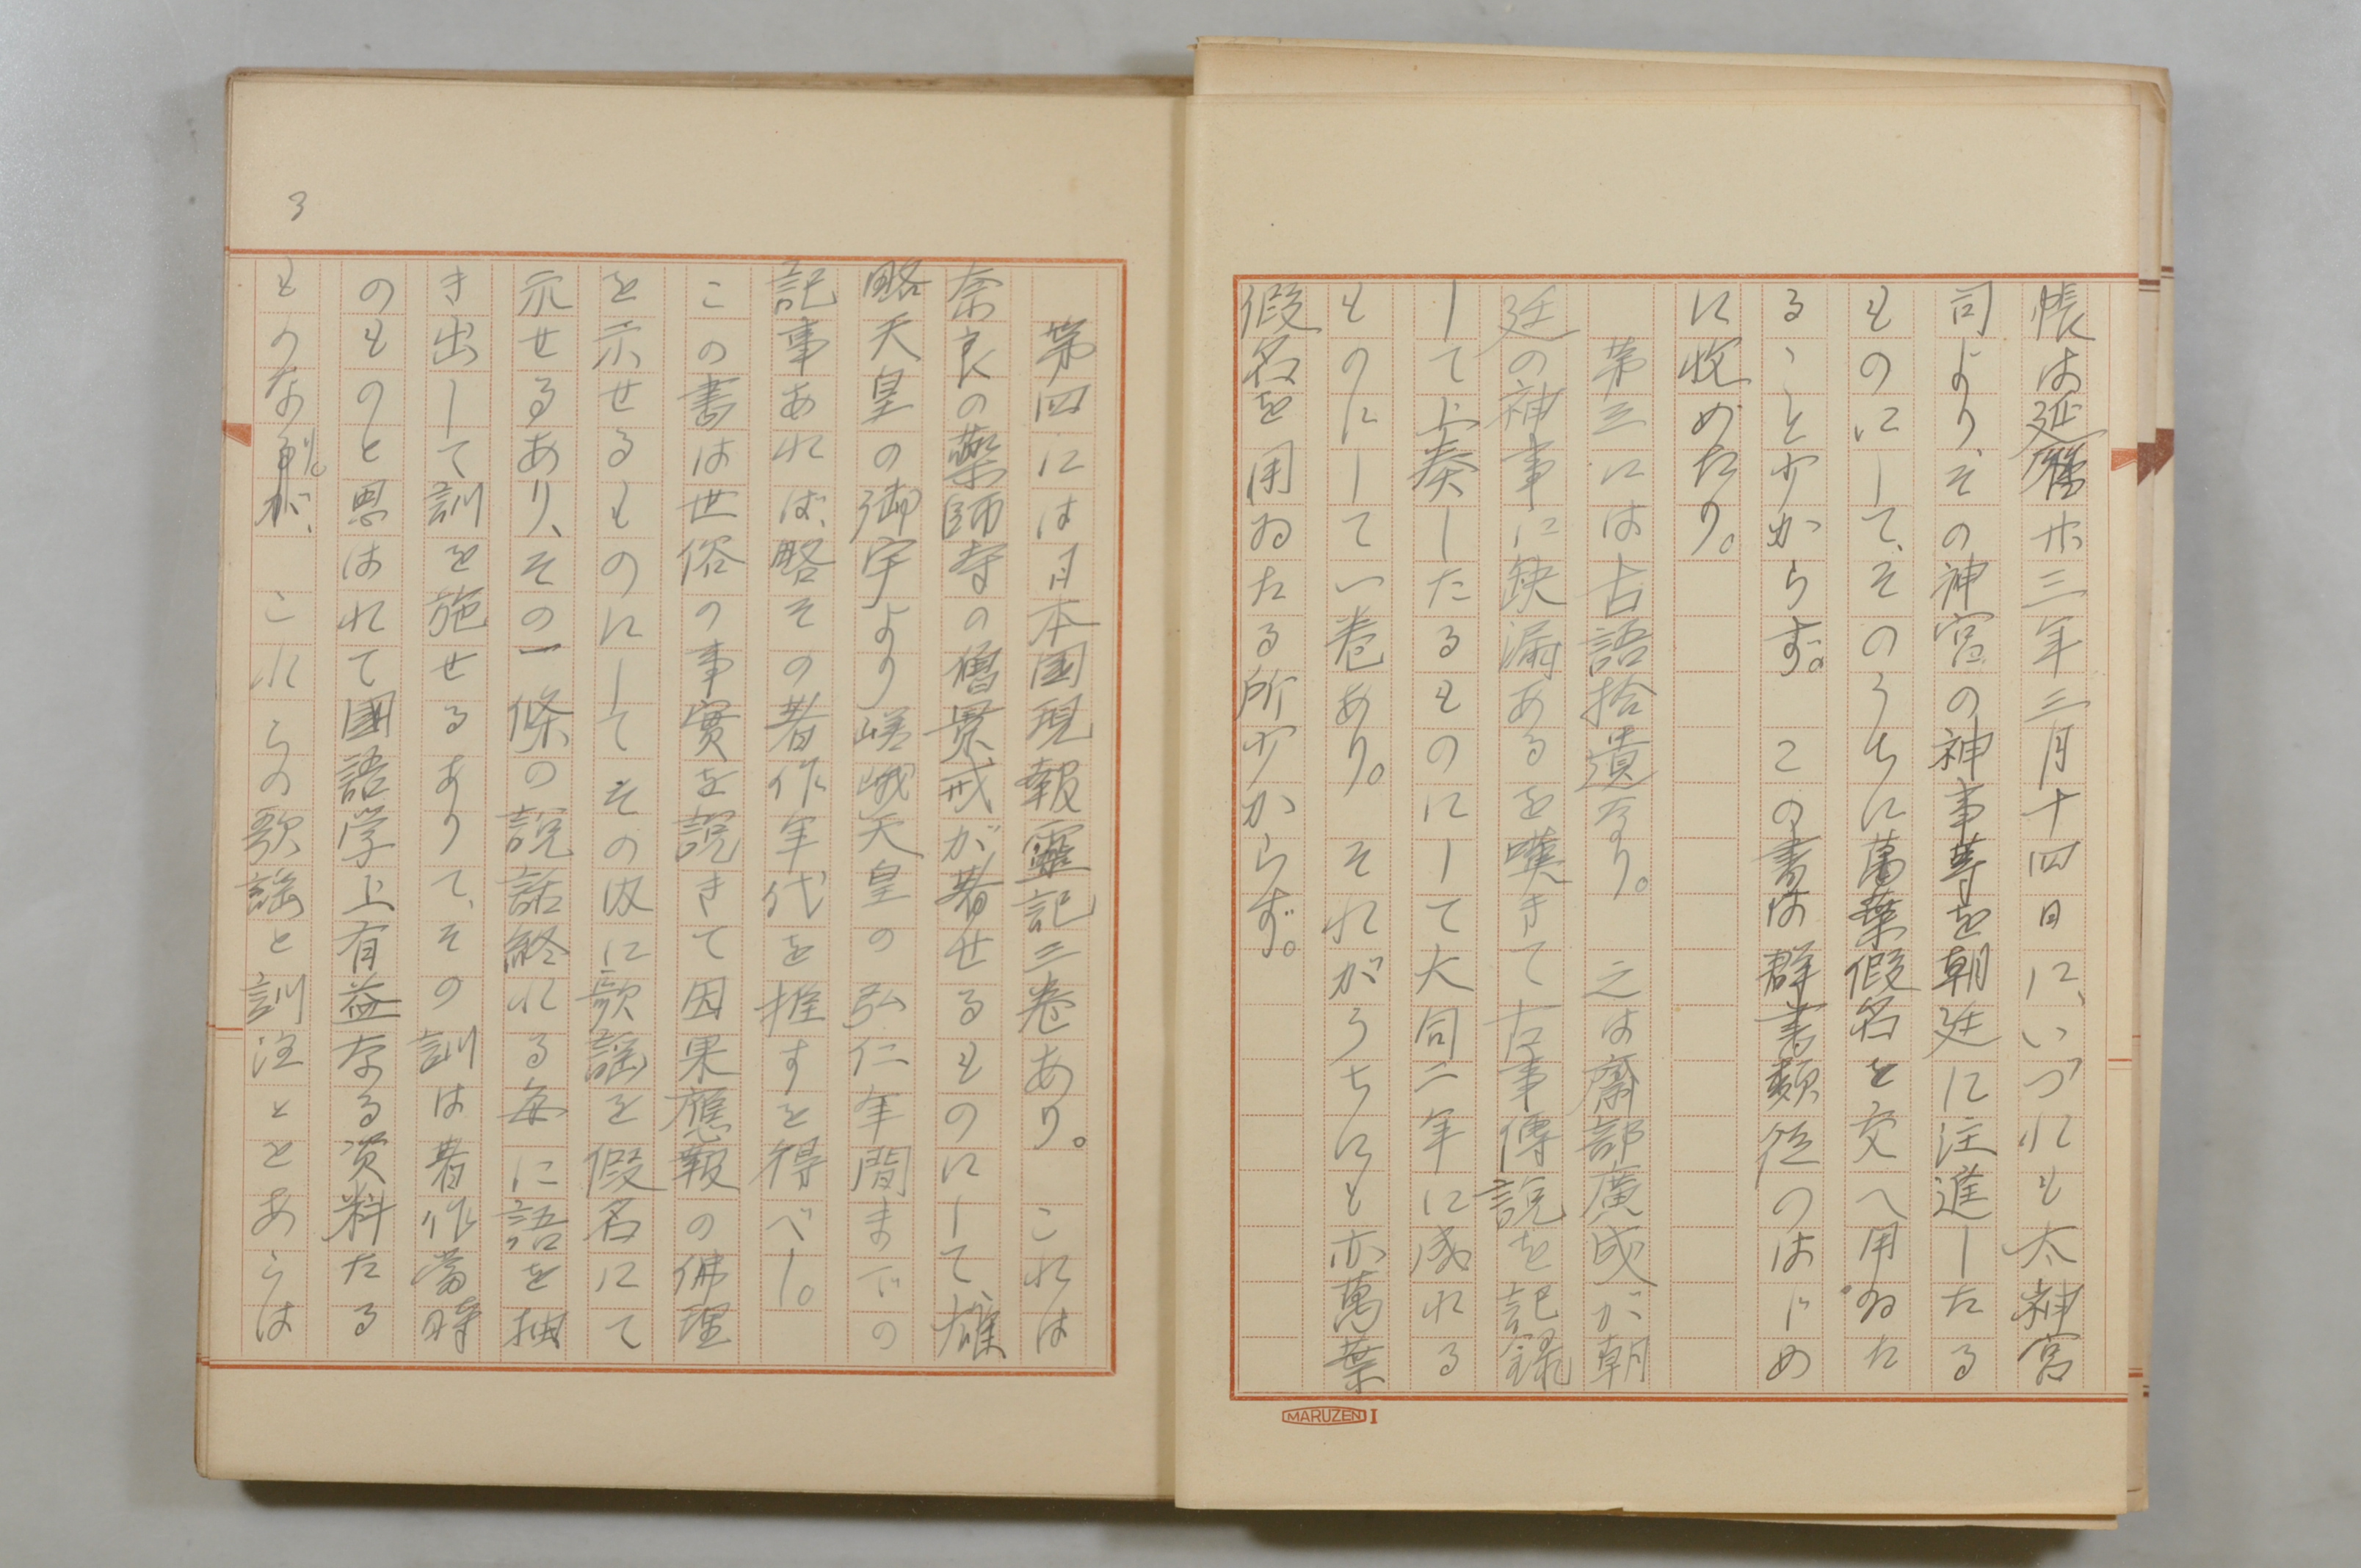 帳は延暦廿三年三月十四日に、いづれも太神宮
司より、その神宮の神事等を朝廷に注進したる
ものにして、そのうちに萬葉假名を交へ用ゐた
ること少からず。この書は群書類従のはじめ
に收めたり。
第三には古語拾遺なり。之は齋部廣成が朝
廷の神事に缺漏あるを嘆きて古事傳説を記録
して上奏したるものにして大同二年に成れる
ものにして一巻あり。それがうちにも亦萬葉
假名を用ゐたる所少からず。
MARUZEN I
3
第四には日本國現報靈記三巻あり。これは
奈良の藥師寺の僧景戒が著せるものにして、雄
略天皇の御宇より嵯峨天皇の弘仁年間までの
記事あれば、略その著作年代を推すを得べし。
この書は世俗の事實を説きて因果應報の佛理
を示せるものにしてその中に歌謡を假名にて
示せるあり、その一條の説話終れる毎に語を抽
き出して訓を施せるありて、その訓は著作當時
のものと思はれて國語学上有益なる資料たる
ものなるが、これらの歌謡と訓注ととあらは